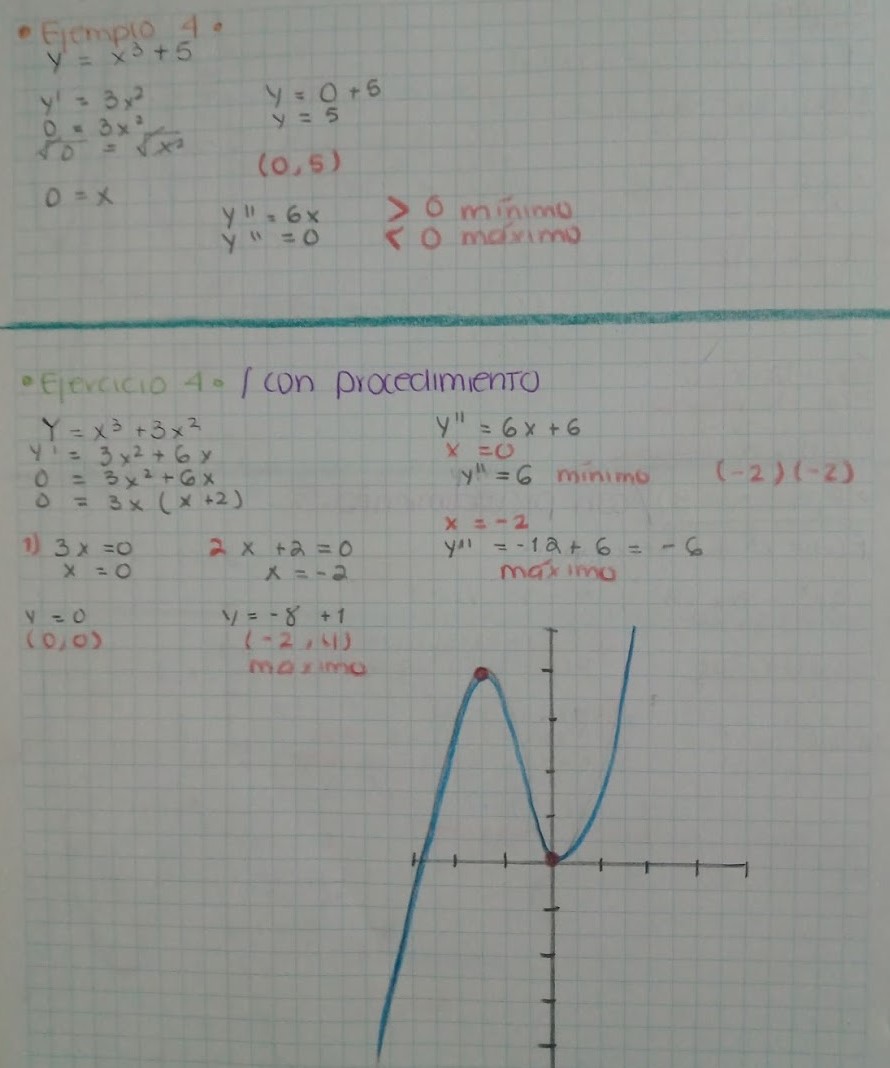 • Ejemplo 4 •
y = x³ + 5
y' = 3x²
0 = 3x²
√0 = √x²
0 = x
y = 0 + 5
y = 5
(0,5)
y'' = 6x > 0 mínimo
y'' = 0 < 0 máximo
• Ejercicio 4 • / con procedimiento
Y = x³ + 3x²
y' = 3x² + 6x
0 = 3x² + 6x
0 = 3x (x + 2)
1) 3x = 0
x = 0
2 x + 2 = 0
x = -2
y = 0
(0,0)
y = -8 + 1
(-2, 4)
maximo
y'' = 6x + 6
x = 0
y'' = 6 mínimo (-2)(-2)
x = -2
y'' = -12 + 6 = -6
máximo